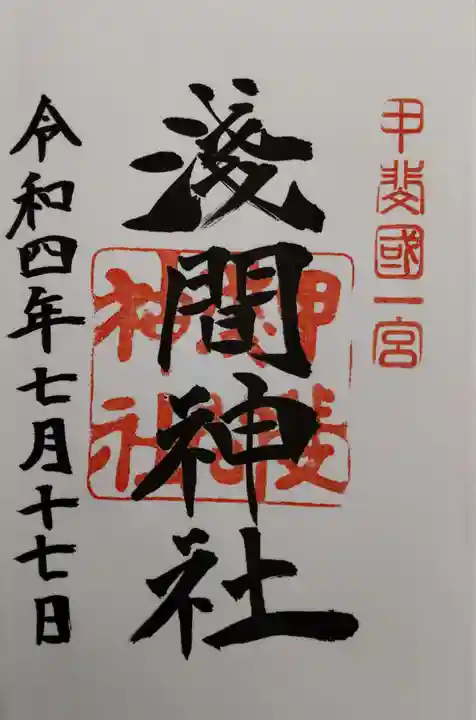 甲斐國一宮
淺間神社
甲斐
淺間
神社
令和四年七月十七日